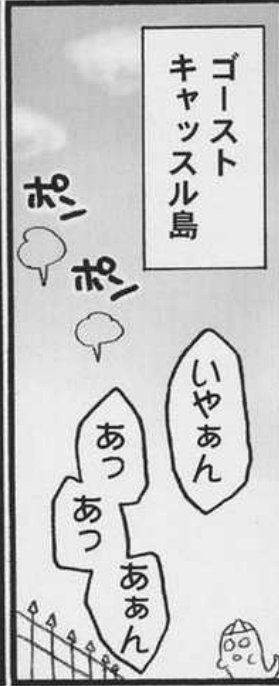 ゴースト
キャッスル島
ポン
ポン
いやぁん
あっ
あっ
あぁん